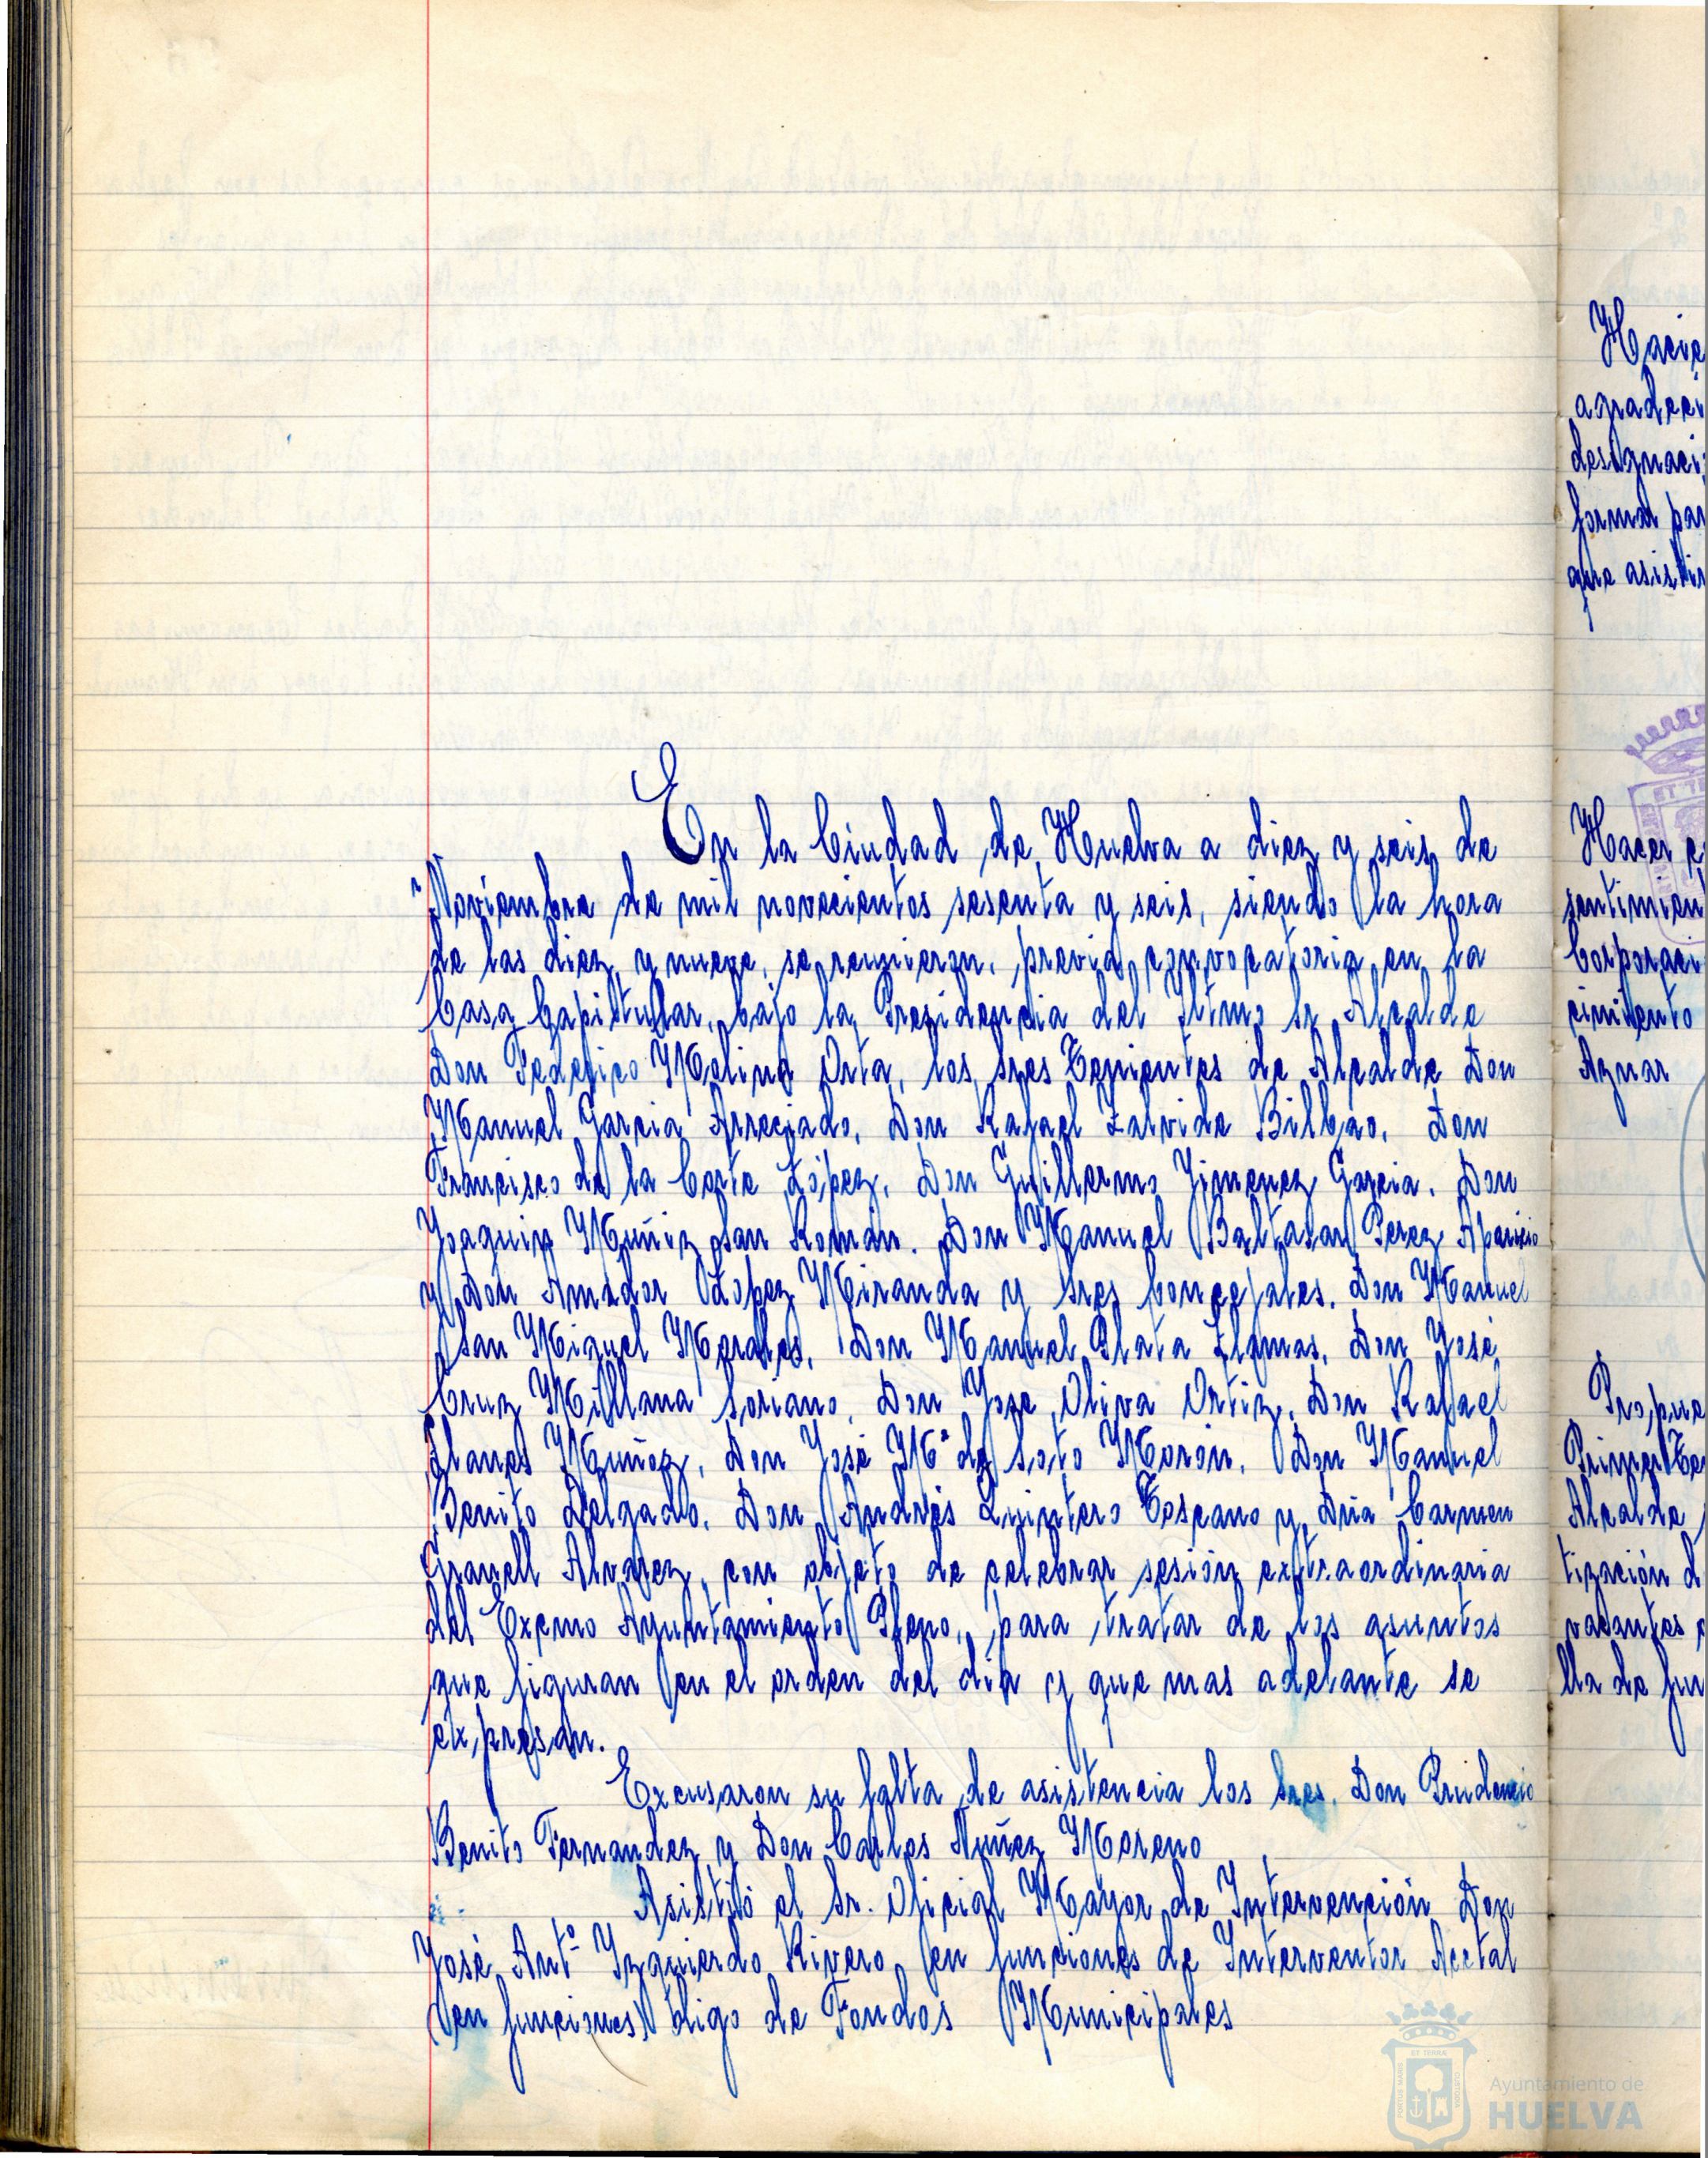 En la Ciudad de Huelva a diez y seis de
Noviembre de mil novecientos sesenta y seis, siendo la hora
de las diez y nueve, se reunieron, previa convocatoria en la
Casa Capitular, bajo la Presidencia del Iltmo Sr Alcalde
Don Federico Molina Orta, los sres Tenientes de Alcalde Don
Manuel Garcia Arreciado, Don Rafael Zalvide Bilbao, Don
Francisco de la Corte López, Don Guillermo Jimenez Garcia, Don
Joaquin Muñiz San Román. Don Manuel Baltasar Perez Aparicio
y Don Amador López Miranda y Sres Concejales, Don Manuel
San Miguel Morales, Don Manuel Plata Llamas, Don José
Cruz Millana Soriano, Don Jose Oliva Ortiz, Don Rafael
Llanes Muñoz, Don José Mª de Soto Morón, Don Manuel
Benito Delgado, Don Andrés Quintero Toscano y Dña Carmen
Granell Alvarez, con objeto de celebrar sesión extraordinaria
del Excmo Ayuntamiento Pleno, para tratar de los asuntos
que figuran en el orden del dia y que mas adelante se
expresan.
Excusaron su falta de asistencia los Sres. Don Prudencio
Benito Fernandez y Don Carlos Nuñez Moreno
Asistió el Sr. Oficial Mayor de Intervención Don
José Antº Izquierdo Rivero en funciones de Interventor Acctal
(en funciones) digo de Fondos Municipales
Hacie
agradeci
designaci
formar par
que asistir
Hacer c
sentimien
Corporaci
cimiento
Aznar
Propue
Primer Te
Alcalde
tización d
vacantes
lla de fun
Ayuntamiento de
HUELVA